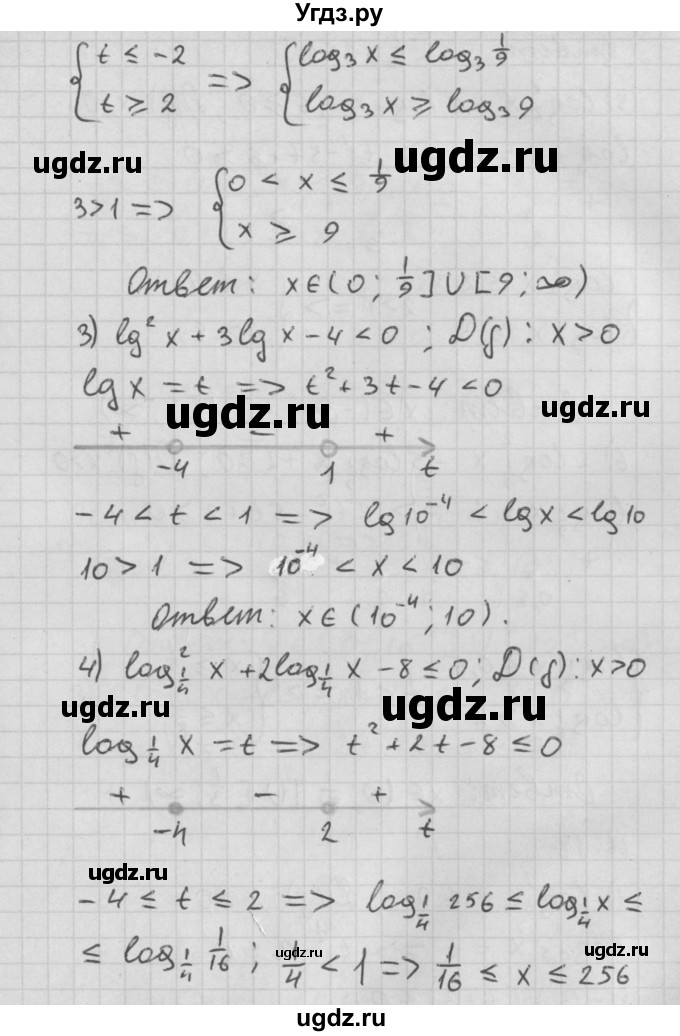 Угдз.ру
{ t ≤ -2 => { log₃ x ≤ log₃ 1/9
{ t ≥ 2 { log₃ x ≥ log₃ 9
ugdz.ru ugdz.ru
3>1 => { 0 < x ≤ 1/9
{ x ≥ 9
Ответ: x∈(0; 1/9]∪[9; ∞)
3) lg² x + 3lg x - 4 < 0 ; D(y): x>0
lg x = t => t² + 3t - 4 < 0
ugdz.ru ugdz.ru
+ - +
-4 1 t
-4 < t < 1 => lg 10⁻⁴ < lg x < lg 10
10 > 1 => 10⁻⁴ < x < 10
Ответ: x∈(10⁻⁴; 10).
4) log²_1/4 x + 2log_1/4 x - 8 ≤ 0; D(y): x>0
ugdz.ru ugdz.ru
log_1/4 x = t => t² + 2t - 8 ≤ 0
+ - +
-4 2 t
ugdz.ru
-4 ≤ t ≤ 2 => log_1/4 256 ≤ log_1/4 x ≤
≤ log_1/4 1/16 ; 1/4 < 1 => 1/16 ≤ x ≤ 256
ugdz.ru ugdz.ru
ugdz.ru